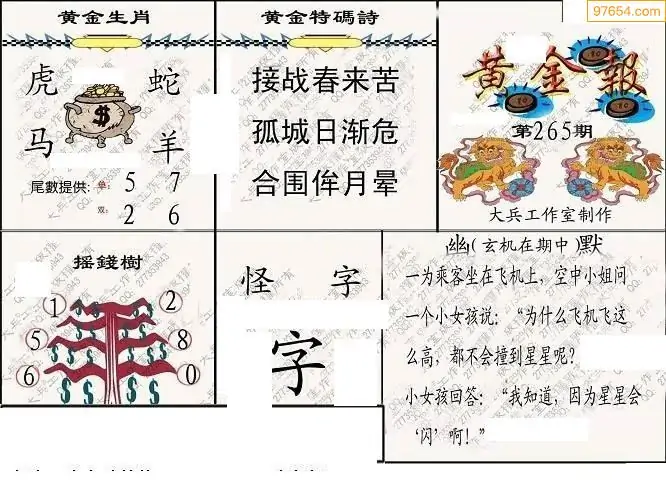 97654.com
黄金生肖
虎 蛇
马 羊
尾數提供: 单: 5 7
双: 2 6
黄金特碼詩
接战春来苦
孤城日渐危
合围侔月晕
黄金報
第265期
大兵工作室制作
摇錢樹
1 2
5 8
6 0
怪 字
字
幽(玄机在期中)默
一为乘客坐在飞机上，空中小姐问
一个小女孩说：“为什么飞机飞这
么高，都不会撞到星星呢？
小女孩回答：“我知道，因为星星会
‘闪’啊！”